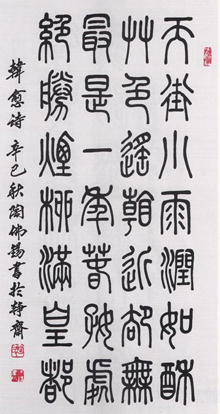 天街小雨潤如酥
艸色遙看近卻無
最是一年春好處
絕勝煙柳滿皇都
韓愈诗 辛巳秋陶佛錫書於靜齋